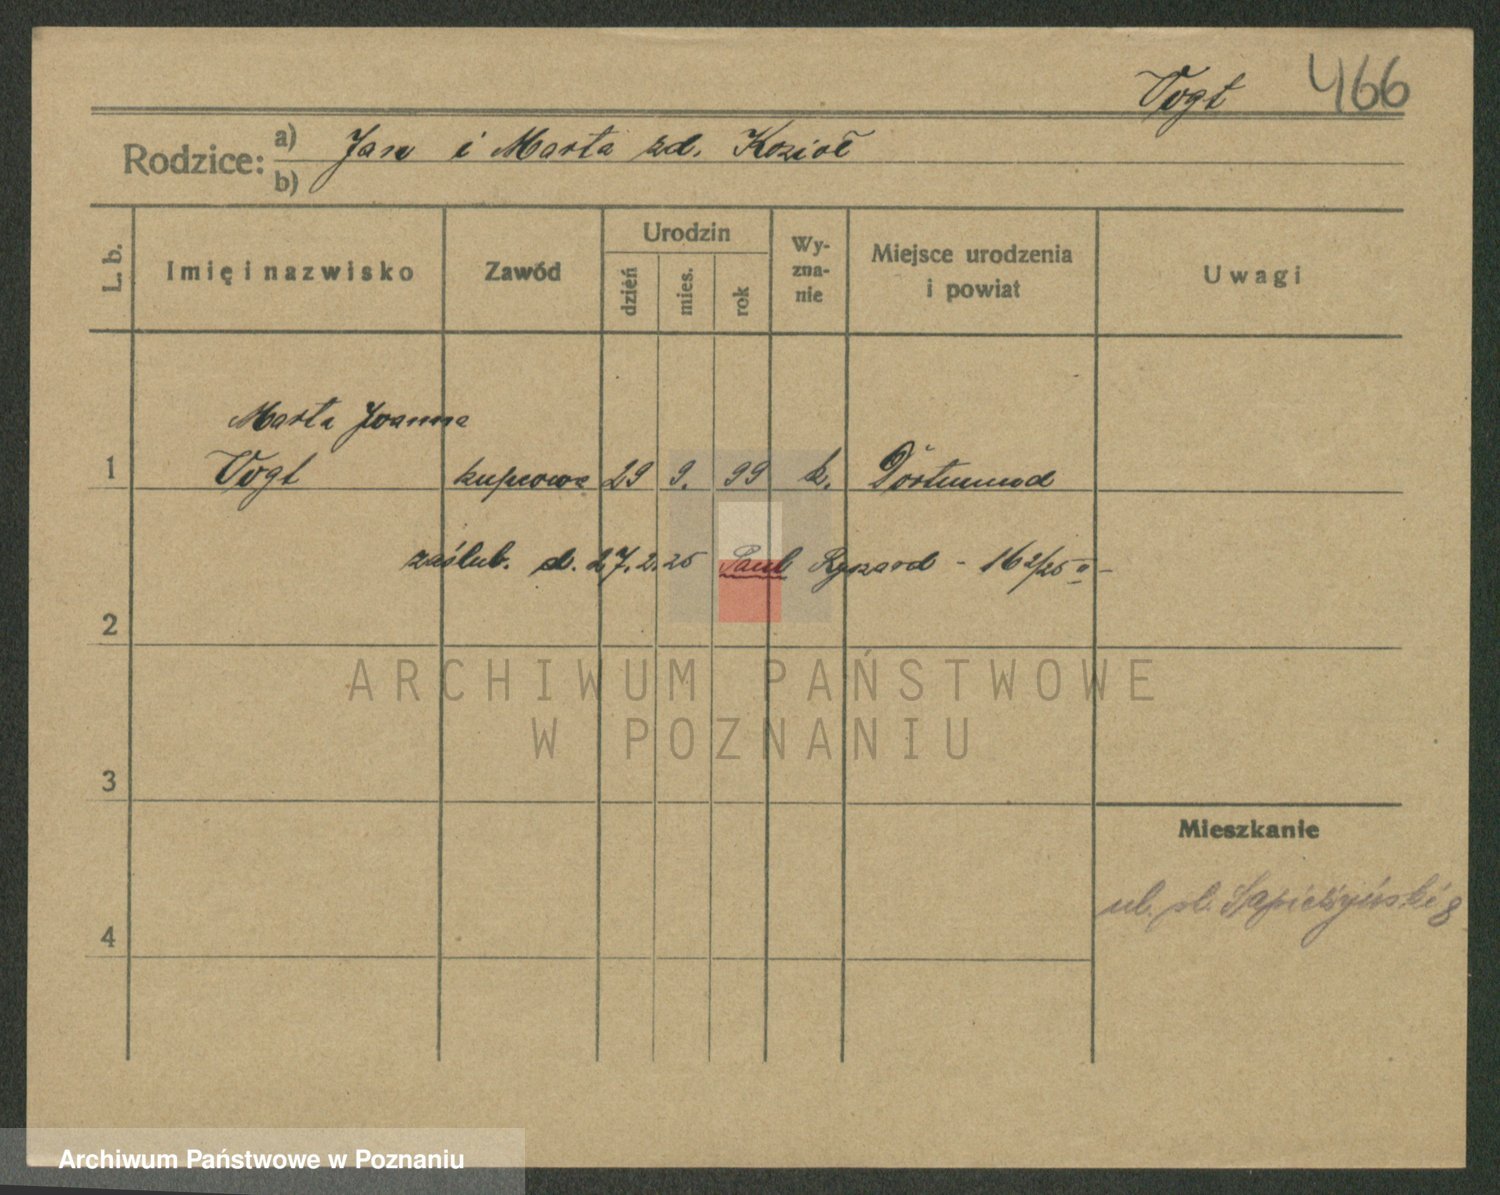 Vogt 466
Rodzice: a) Jan i Marta zd. Kozioł
b)
L. b. Imię i nazwisko Zawód Urodzin dzień mies. rok Wy-zna-nie Miejsce urodzenia i powiat Uwagi
Marta Joanna
1 Vogt kupcowa 29 9. 99 k. Dortmund
zaślub. d. 27.2.25 Paul Ryszard - 162/25 II -
2
ARCHIWUM PAŃSTWOWE
W POZNANIU
3
Mieszkanie
ul. pl. Sapieżyński 8
4
Archiwum Państwowe w Poznaniu